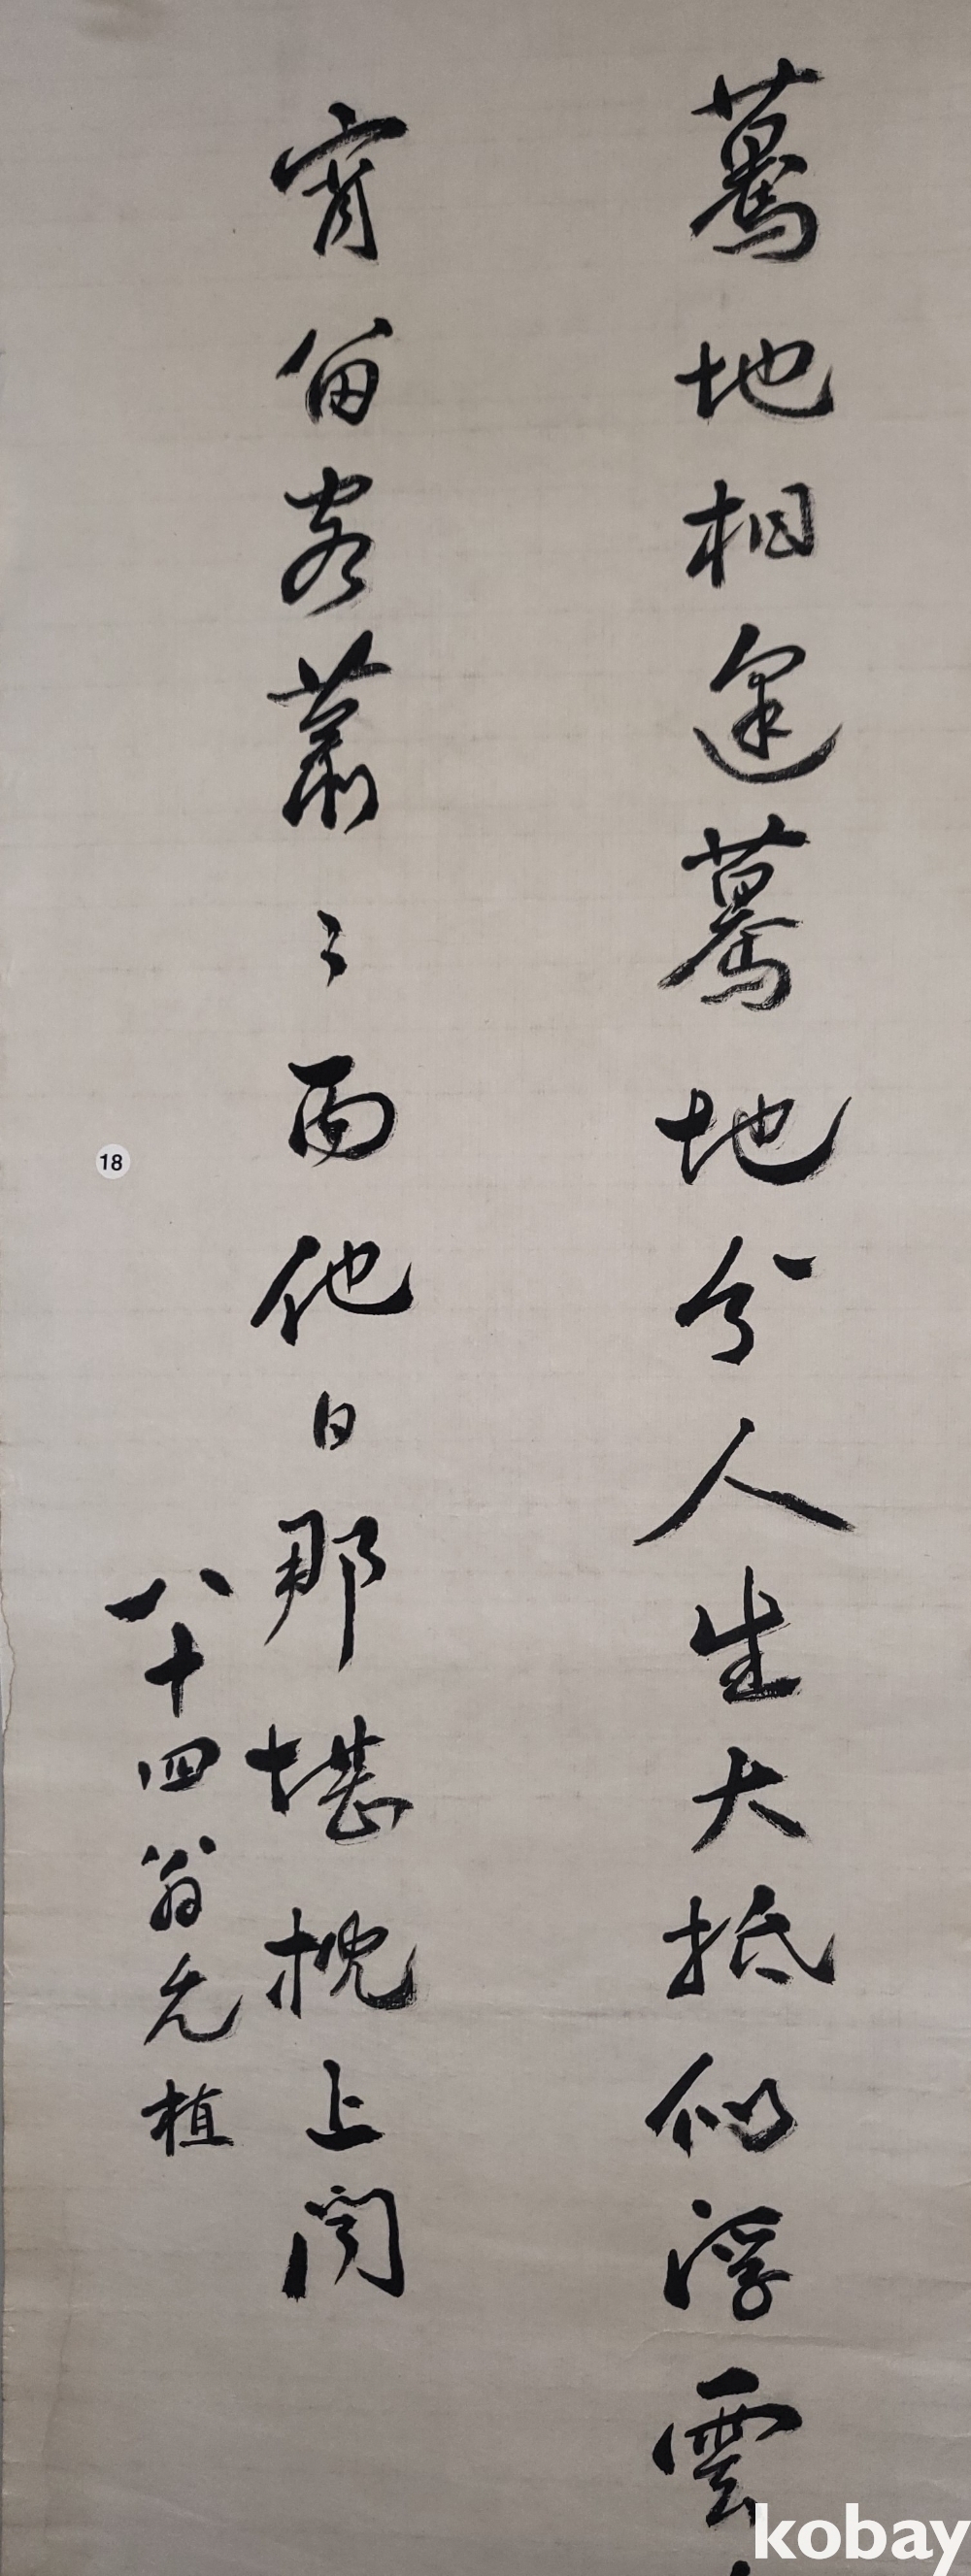 驀地相逢驀地分人生大抵似浮雲
宵留客蕭〻雨他日那堪枕上聞
八十四翁允植
18
kobay